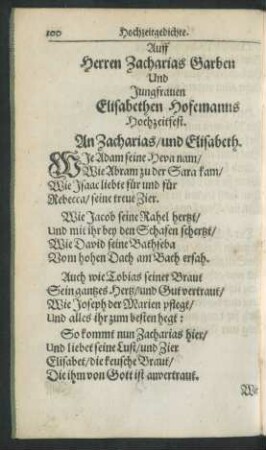 100 Hochzeitgedichte.
Auff
Herren Zacharias Garben
Und
Jungfrauen
Elisabethen Hofemanns
Hochzeitfest.
An Zacharias/und Elisabeth.
WIe Adam seine Heva nam/
Wie Abram zu der Sara kam/
Wie Isaac liebte für und für
Rebecca/ seine treue Zier.
Wie Jacob seine Rahel hertzt/
Und mit ihr bey den Schafen schertzt/
Wie David seine Bathseba
Vom hohen Dach am Bach ersah.
Auch wie Tobias seiner Braut
Sein gantzes Hertz/und Gut vertraut/
Wie Joseph der Marien pflegt/
Und alles ihr zum besten hegt:
So kommt nun Zacharias hier/
Und liebet seine Lust/und Zier
Elisabet/die keusche Braut/
Die ihm von Gott ist anvertraut.
Wie